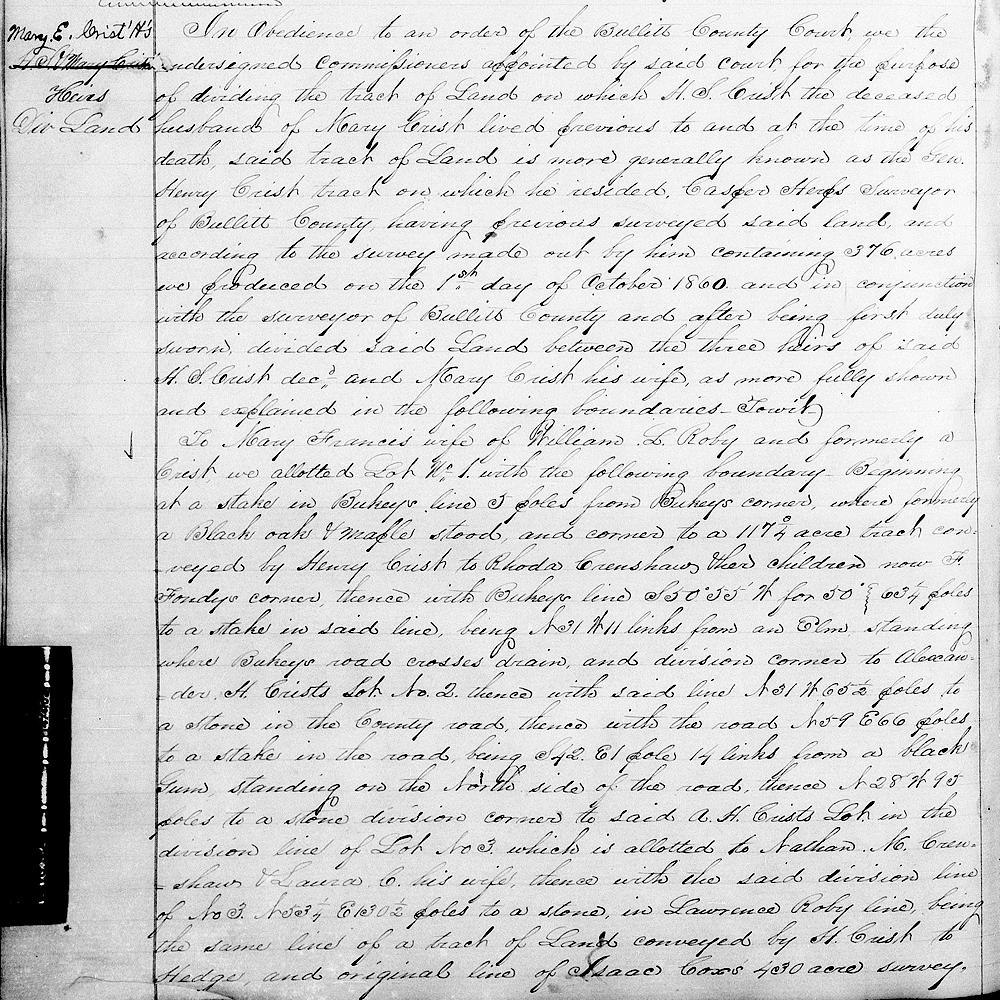 Mary. E. Crist H's
H S & Mary Crist
Heirs
Div Land
In Obedience to an order of the Bullitt County Court, we the
undersigned Commissioners appointed by said court for the purpose
of dividing the tract of Land on which H. S. Crist the deceased
husband of Mary Crist lived previous to and at the time of his
death, said tract of Land is more generally known as the Gen.
Henry Crist tract on which he resided, Casper Herps Surveyor
of Bullitt County, having previous surveyed said land, and
according to the survey made out by him containing 376 acres
we produced on the 1st day of October 1860 and in conjunction
with the surveyor of Bullitt County and after being first duly
sworn, divided said Land between the three heirs of said
H. S. Crist decd and Mary Crist his wife, as more fully shown
and explained in the following boundaries - Towit,
To Mary Francis wife of William L. Roby and formerly a
Crist, we allotted Lot No 1. with the following boundary - Beginning
at a stake in Bukeys line 5 poles from Bukeys corner, where formerly
a Black oak & Maple stood, and corner to a 117 acre tract con-
-veyed by Henry Crist to Rhoda Crenshaw, & her children now F.
Foudys corner, thence with Bukeys line S 50° 55' W for 50° 63¼ poles
to a stake in said line, being N 31 W 11 links from an Elm, standing
where Bukeys road crosses drain, and division corner to Alexan-
-der. H. Crists Lot No. 2. thence with said line N 31 W 65½ poles to
a stone in the County road, thence with the road N 59 E 66 poles
to a stake in the road, being S 42. E 1 pole 14 links from a black
Gum, standing on the North side of the road, thence N 28 W 95
poles to a stone division corner to said A. H. Crists Lot in the
division line of Lot No 3. which is allotted to Nathan. M. Cren-
-shaw & Laura C. his wife, thence with the said division line
of No 3. N 53¼ E 130½ poles to a stone, in Lawrence Roby line, being
the same line of a tract of Land conveyed by H. Crist to
Hedge, and original line of Isaac Cox's 430 acre survey.